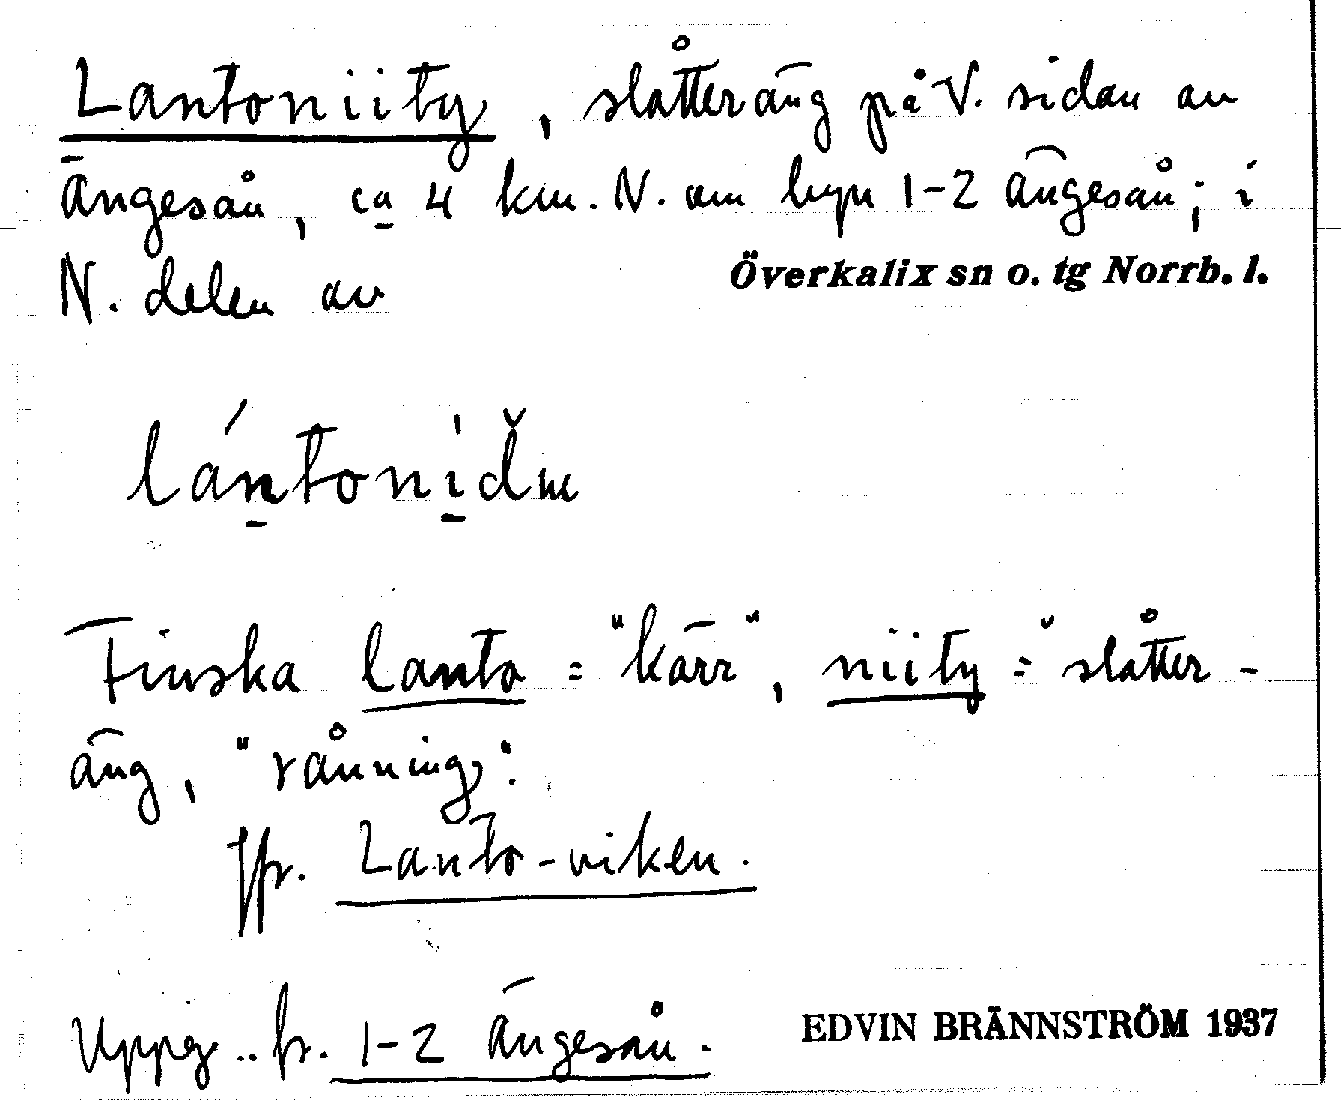 Lantoniity, slåtteräng på V. sidan av
Ängesån, ca 4 km. N. om byn 1-2 Ängesån; i
N. delen av Överkalix sn o. tg Norrb. l.
Finska lanto = "kärr", niity = "slåtter-
äng, "rånning".
Jfr. Lanto-viken.
Uppg. .. fr. 1-2 Ängesån.
EDVIN BRÄNNSTRÖM 1937